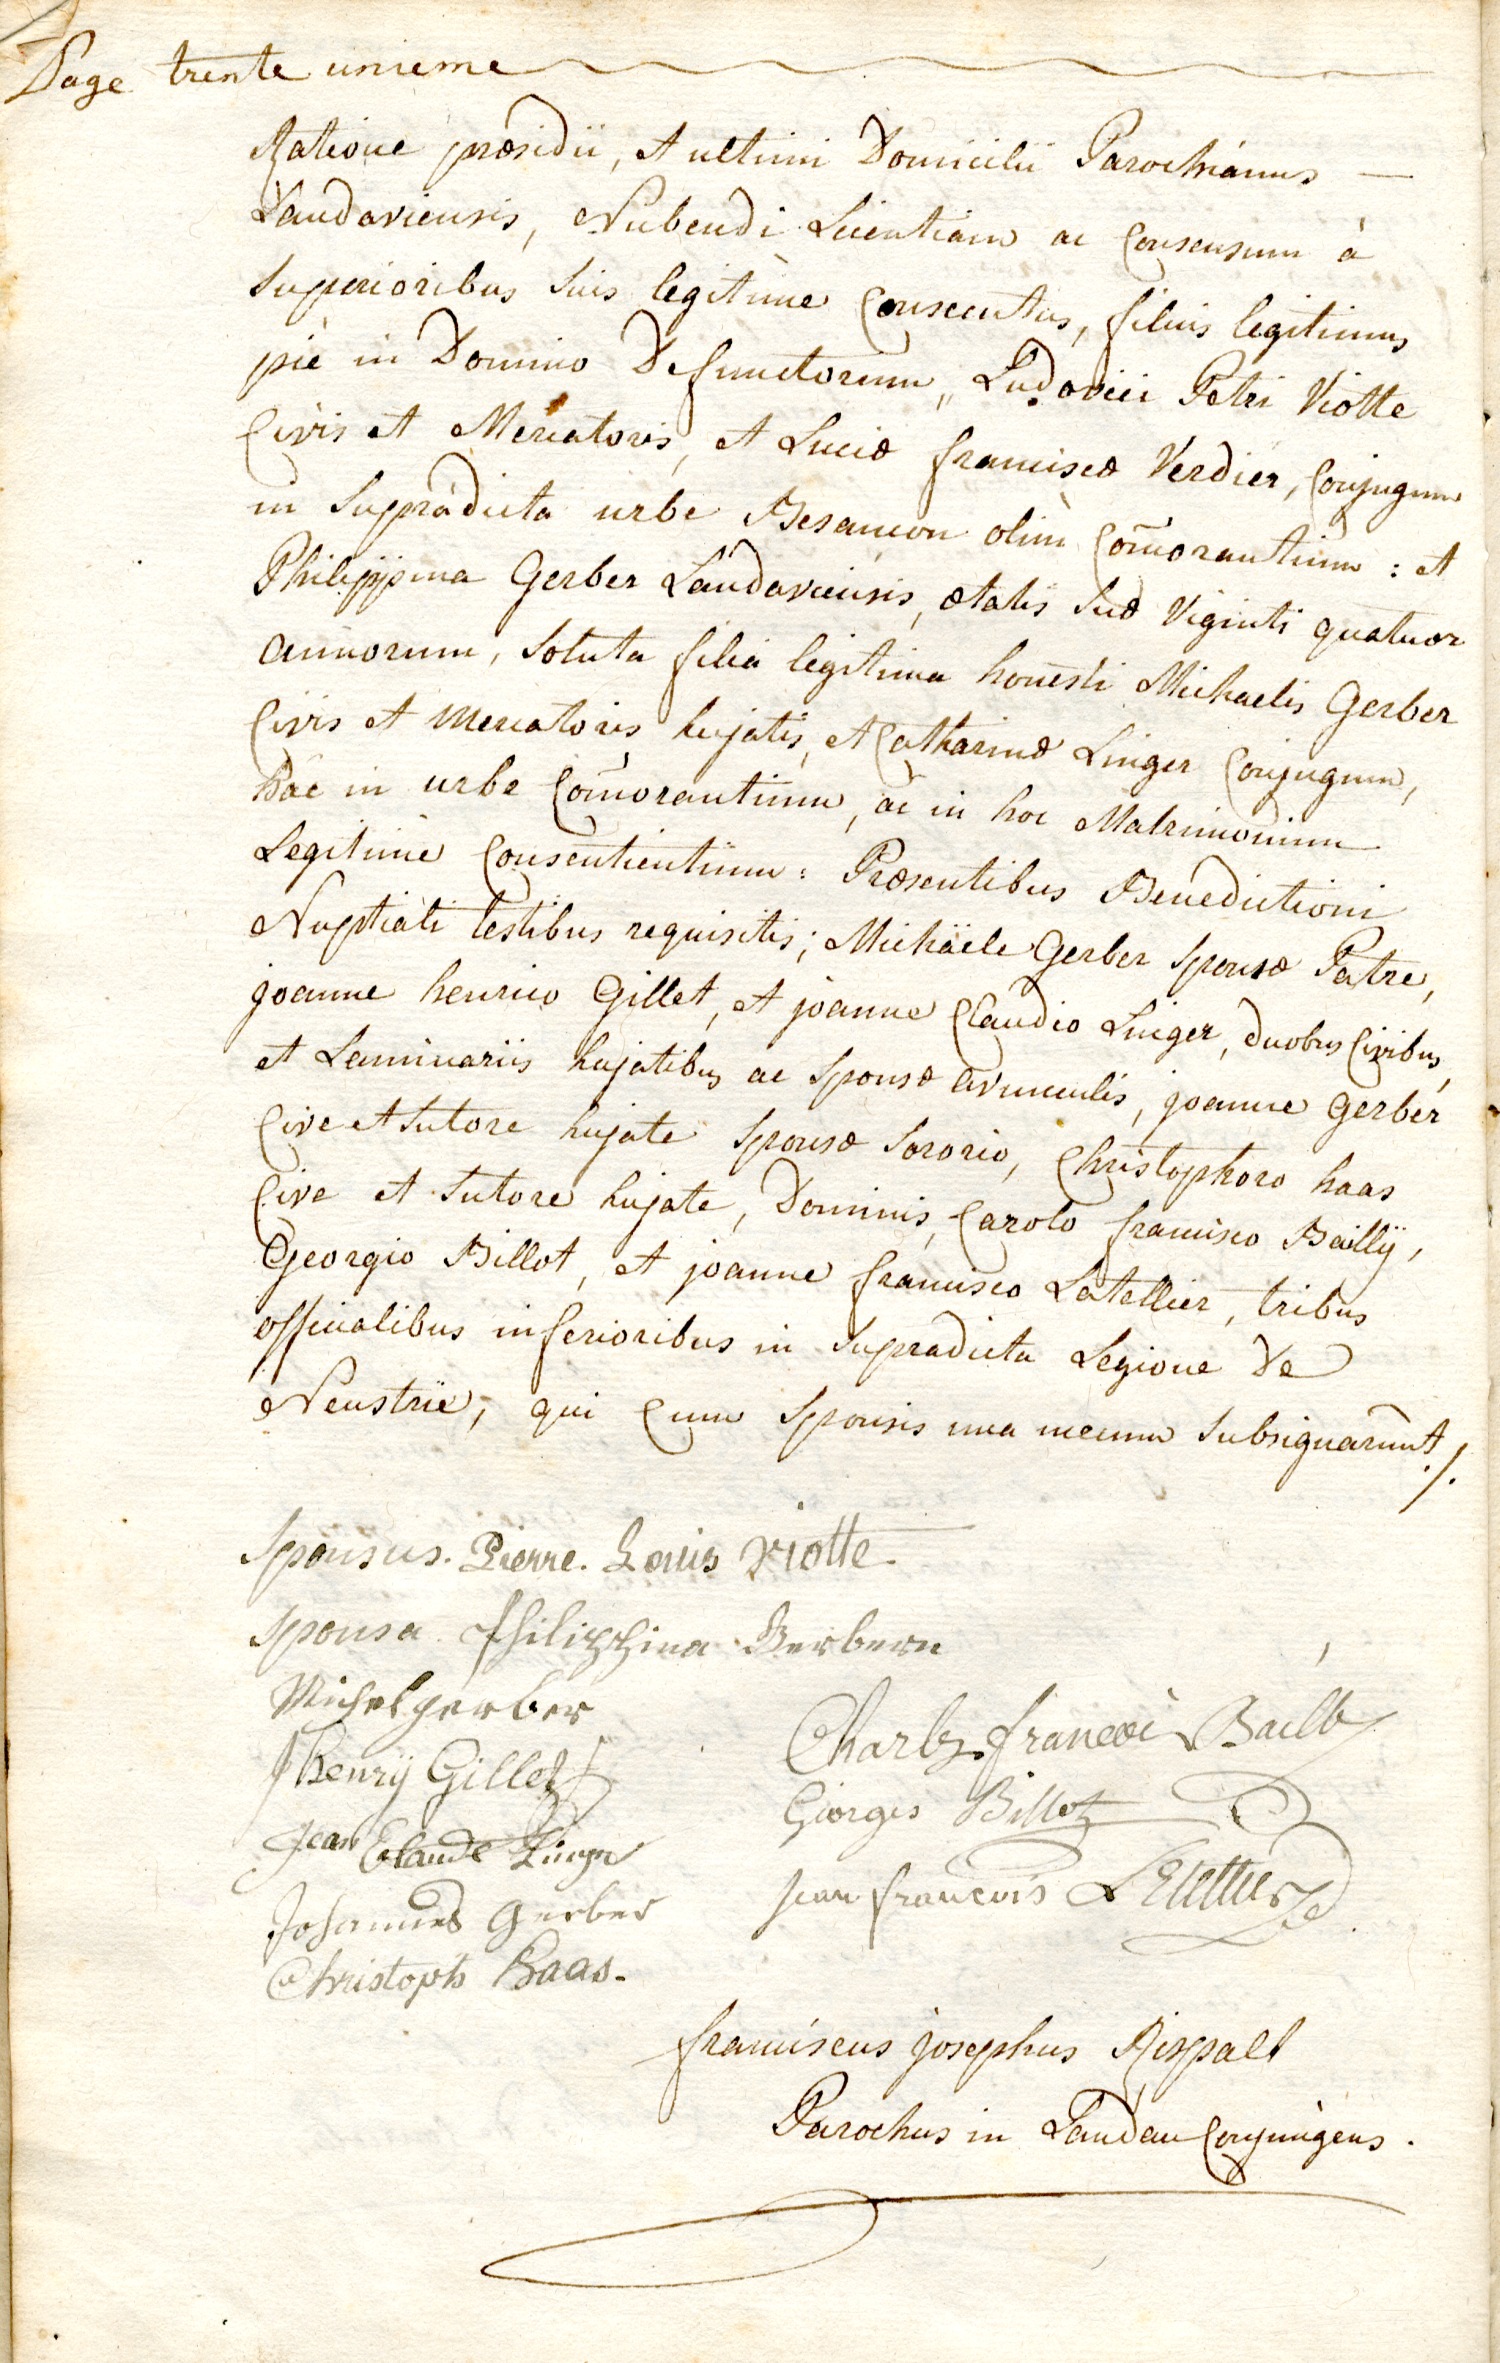 Page trente unieme
Ratione præsidii, et ultimi Domicilii Parochianus —
Landaviensis, Nubendi Licentiam ac Consensum à
Superioribus Suis legitimè Consecutus, filius legitimus
piè in Domino Defunctorum, Ludovici Petri Viotte
Civis et Mercatoris, et Luciæ franciscæ Verdier, Conjugum
in Supradicta urbe Besancon olim Com̄orantium : et
Philippina Gerber Landaviensis, ætatis Suæ Viginti quatuor
annorum, Soluta filia legitima honesti Michaelis Gerber
Civis et Mercatoris hujatis, et Catharinæ Linger Conjugum,
hâc in urbe Com̄orantium, ac in hoc Matrimonium
Legitimè Consentientium : Præsentibus Benedictioni
Nuptiali testibus requisitis; Michäele Gerber Sponsæ Patre,
joanne henrico Gillet, et joanne Claudio Linger, duobus Civibus,
et Laminariis hujatibus ac Sponsæ avunculis, joanne Gerber
Cive et Sutore hujate Sponsæ Sororio, Christophoro haas
Cive et Sutore hujate, Dominis, Carolo francisco Baillÿ,
Georgio Billot, et joanne francisco Latellier, tribus
officialibus inferioribus in Supradicta Legione de
Neustrie, qui Cum Sponsis una mecum Subsignarunt ./.
Sponsus. Pierre. Louis Viotte.
Sponsa Philippina Gerbern
Michel gerber
J henrÿ Gillet
Charles francoi Bailly
Jean Claude Linger
Giorges Billot
Johannes Gerber
jean francois LEtellier
Christoph Haas.
franciscus josephus Rispalt
Parochus in Landau Conjungens.